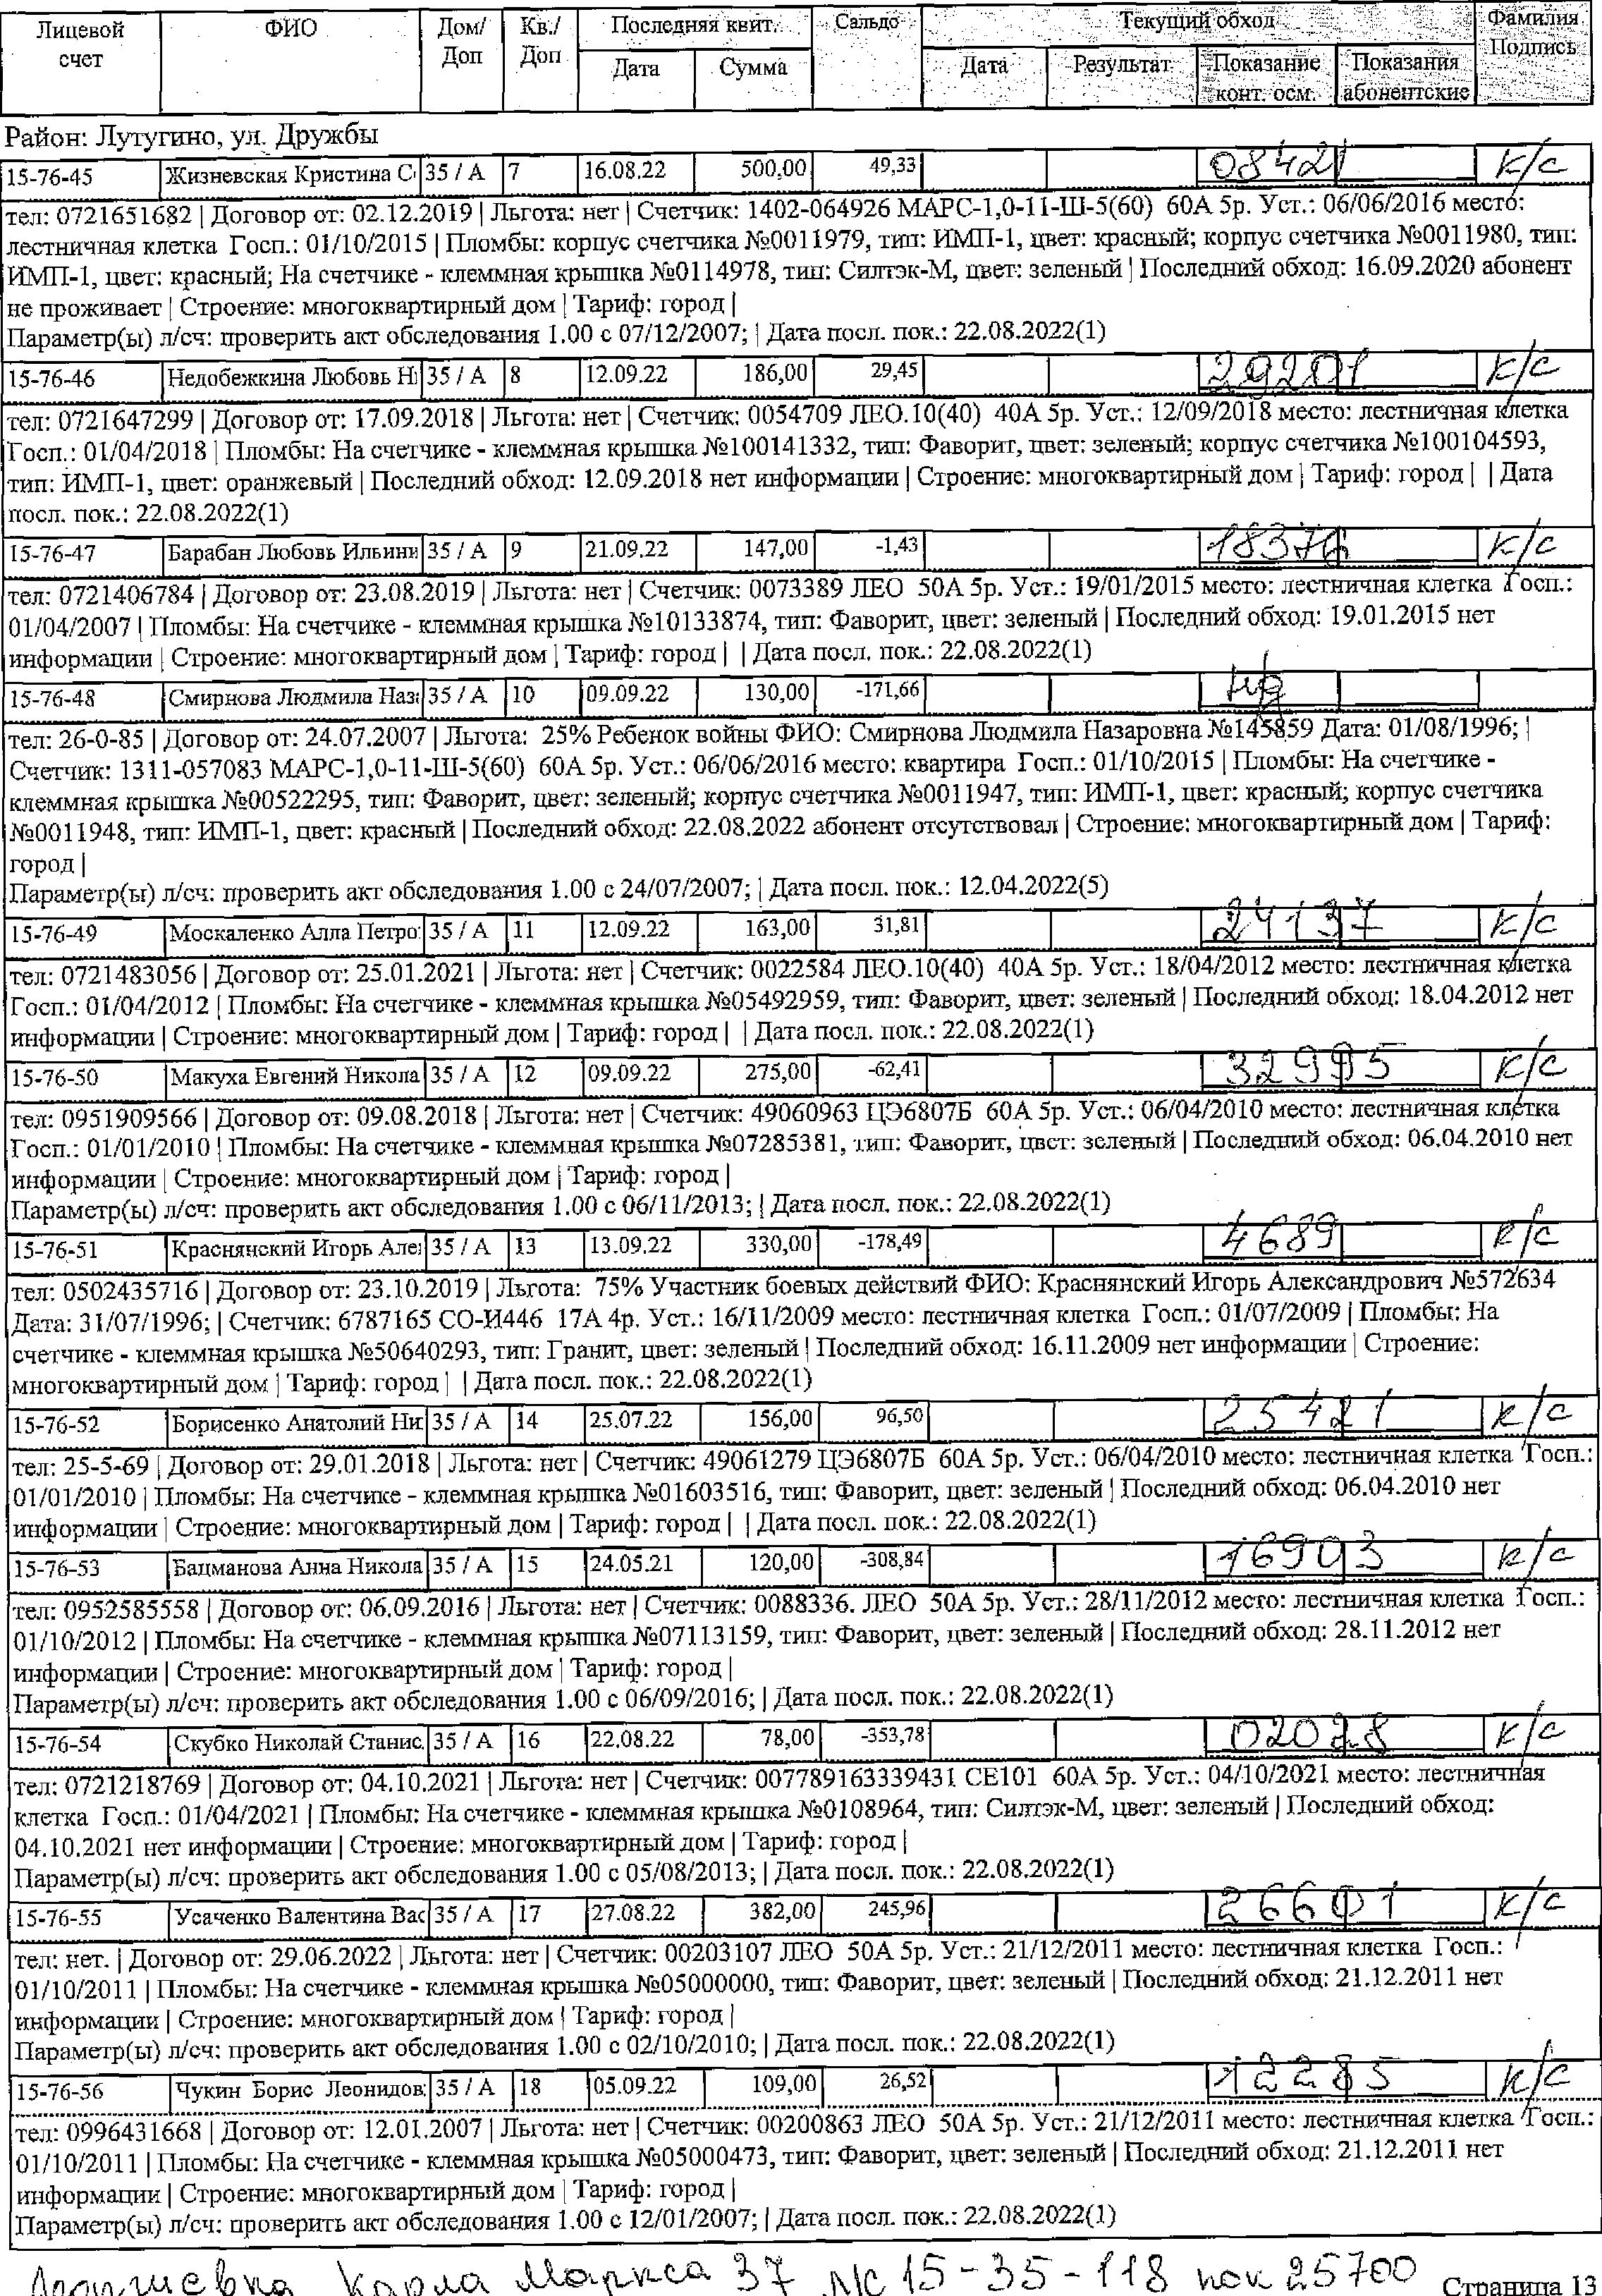 Лицевой счет ФИО Дом/ Доп Кв./ Доп Последняя квит. Сальдо Текущий обход Фамилия Подпись
Дата Сумма Дата Результат Показание конт. осм. Показания абонентские
Район: Лутугино, ул. Дружбы
15-76-45 Жизневская Кристина С 35 / А 7 16.08.22 500,00 49,33 08421 к/с
тел: 0721651682 | Договор от: 02.12.2019 | Льгота: нет | Счетчик: 1402-064926 МАРС-1,0-11-Ш-5(60) 60А 5р. Уст.: 06/06/2016 место:
лестничная клетка Госп.: 01/10/2015 | Пломбы: корпус счетчика №0011979, тип: ИМП-1, цвет: красный; корпус счетчика №0011980, тип:
ИМП-1, цвет: красный; На счетчике - клеммная крышка №0114978, тип: Силтэк-М, цвет: зеленый | Последний обход: 16.09.2020 абонент
не проживает | Строение: многоквартирный дом | Тариф: город |
Параметр(ы) л/сч: проверить акт обследования 1.00 с 07/12/2007; | Дата посл. пок.: 22.08.2022(1)
15-76-46 Недобежкина Любовь Н 35 / А 8 12.09.22 186,00 29,45 29201 к/с
тел: 0721647299 | Договор от: 17.09.2018 | Льгота: нет | Счетчик: 0054709 ЛЕО.10(40) 40А 5р. Уст.: 12/09/2018 место: лестничная клетка
Госп.: 01/04/2018 | Пломбы: На счетчике - клеммная крышка №100141332, тип: Фаворит, цвет: зеленый; корпус счетчика №100104593,
тип: ИМП-1, цвет: оранжевый | Последний обход: 12.09.2018 нет информации | Строение: многоквартирный дом | Тариф: город | | Дата
посл. пок.: 22.08.2022(1)
15-76-47 Барабан Любовь Ильини 35 / А 9 21.09.22 147,00 -1,43 18376 к/с
тел: 0721406784 | Договор от: 23.08.2019 | Льгота: нет | Счетчик: 0073389 ЛЕО 50А 5р. Уст.: 19/01/2015 место: лестничная клетка Госп.:
01/04/2007 | Пломбы: На счетчике - клеммная крышка №10133874, тип: Фаворит, цвет: зеленый | Последний обход: 19.01.2015 нет
информации | Строение: многоквартирный дом | Тариф: город | | Дата посл. пок.: 22.08.2022(1)
15-76-48 Смирнова Людмила Наз 35 / А 10 09.09.22 130,00 -171,66
тел: 26-0-85 | Договор от: 24.07.2007 | Льгота: 25% Ребенок войны ФИО: Смирнова Людмила Назаровна №145859 Дата: 01/08/1996; |
Счетчик: 1311-057083 МАРС-1,0-11-Ш-5(60) 60А 5р. Уст.: 06/06/2016 место: квартира Госп.: 01/10/2015 | Пломбы: На счетчике -
клеммная крышка №00522295, тип: Фаворит, цвет: зеленый; корпус счетчика №0011947, тип: ИМП-1, цвет: красный; корпус счетчика
№0011948, тип: ИМП-1, цвет: красный | Последний обход: 22.08.2022 абонент отсутствовал | Строение: многоквартирный дом | Тариф:
город |
Параметр(ы) л/сч: проверить акт обследования 1.00 с 24/07/2007; | Дата посл. пок.: 12.04.2022(5)
15-76-49 Москаленко Алла Петро 35 / А 11 12.09.22 163,00 31,81 24137 к/с
тел: 0721483056 | Договор от: 25.01.2021 | Льгота: нет | Счетчик: 0022584 ЛЕО.10(40) 40А 5р. Уст.: 18/04/2012 место: лестничная клетка
Госп.: 01/04/2012 | Пломбы: На счетчике - клеммная крышка №05492959, тип: Фаворит, цвет: зеленый | Последний обход: 18.04.2012 нет
информации | Строение: многоквартирный дом | Тариф: город | | Дата посл. пок.: 22.08.2022(1)
15-76-50 Макуха Евгений Никола 35 / А 12 09.09.22 275,00 -62,41 32995 к/с
тел: 0951909566 | Договор от: 09.08.2018 | Льгота: нет | Счетчик: 49060963 ЦЭ6807Б 60А 5р. Уст.: 06/04/2010 место: лестничная клетка
Госп.: 01/01/2010 | Пломбы: На счетчике - клеммная крышка №07285381, тип: Фаворит, цвет: зеленый | Последний обход: 06.04.2010 нет
информации | Строение: многоквартирный дом | Тариф: город |
Параметр(ы) л/сч: проверить акт обследования 1.00 с 06/11/2013; | Дата посл. пок.: 22.08.2022(1)
15-76-51 Краснянский Игорь Але 35 / А 13 13.09.22 330,00 -178,49 4689 к/с
тел: 0502435716 | Договор от: 23.10.2019 | Льгота: 75% Участник боевых действий ФИО: Краснянский Игорь Александрович №572634
Дата: 31/07/1996; | Счетчик: 6787165 СО-И446 17А 4р. Уст.: 16/11/2009 место: лестничная клетка Госп.: 01/07/2009 | Пломбы: На
счетчике - клеммная крышка №50640293, тип: Гранит, цвет: зеленый | Последний обход: 16.11.2009 нет информации | Строение:
многоквартирный дом | Тариф: город | | Дата посл. пок.: 22.08.2022(1)
15-76-52 Борисенко Анатолий Ни 35 / А 14 25.07.22 156,00 96,50 25421 к/с
тел: 25-5-69 | Договор от: 29.01.2018 | Льгота: нет | Счетчик: 49061279 ЦЭ6807Б 60А 5р. Уст.: 06/04/2010 место: лестничная клетка Госп.:
01/01/2010 | Пломбы: На счетчике - клеммная крышка №01603516, тип: Фаворит, цвет: зеленый | Последний обход: 06.04.2010 нет
информации | Строение: многоквартирный дом | Тариф: город | | Дата посл. пок.: 22.08.2022(1)
15-76-53 Бацманова Анна Никола 35 / А 15 24.05.21 120,00 -308,84 16903 к/с
тел: 0952585558 | Договор от: 06.09.2016 | Льгота: нет | Счетчик: 0088336. ЛЕО 50А 5р. Уст.: 28/11/2012 место: лестничная клетка Госп.:
01/10/2012 | Пломбы: На счетчике - клеммная крышка №07113159, тип: Фаворит, цвет: зеленый | Последний обход: 28.11.2012 нет
информации | Строение: многоквартирный дом | Тариф: город |
Параметр(ы) л/сч: проверить акт обследования 1.00 с 06/09/2016; | Дата посл. пок.: 22.08.2022(1)
15-76-54 Скубко Николай Станис 35 / А 16 22.08.22 78,00 -353,78 02028 к/с
тел: 0721218769 | Договор от: 04.10.2021 | Льгота: нет | Счетчик: 007789163339431 СЕ101 60А 5р. Уст.: 04/10/2021 место: лестничная
клетка Госп.: 01/04/2021 | Пломбы: На счетчике - клеммная крышка №0108964, тип: Силтэк-М, цвет: зеленый | Последний обход:
04.10.2021 нет информации | Строение: многоквартирный дом | Тариф: город |
Параметр(ы) л/сч: проверить акт обследования 1.00 с 05/08/2013; | Дата посл. пок.: 22.08.2022(1)
15-76-55 Усаченко Валентина Вас 35 / А 17 27.08.22 382,00 245,96 26601 к/с
тел: нет. | Договор от: 29.06.2022 | Льгота: нет | Счетчик: 00203107 ЛЕО 50А 5р. Уст.: 21/12/2011 место: лестничная клетка Госп.:
01/10/2011 | Пломбы: На счетчике - клеммная крышка №05000000, тип: Фаворит, цвет: зеленый | Последний обход: 21.12.2011 нет
информации | Строение: многоквартирный дом | Тариф: город |
Параметр(ы) л/сч: проверить акт обследования 1.00 с 02/10/2010; | Дата посл. пок.: 22.08.2022(1)
15-76-56 Чукин Борис Леонидов 35 / А 18 05.09.22 109,00 26,52 12285 к/с
тел: 0996431668 | Договор от: 12.01.2007 | Льгота: нет | Счетчик: 00200863 ЛЕО 50А 5р. Уст.: 21/12/2011 место: лестничная клетка Госп.:
01/10/2011 | Пломбы: На счетчике - клеммная крышка №05000473, тип: Фаворит, цвет: зеленый | Последний обход: 21.12.2011 нет
информации | Строение: многоквартирный дом | Тариф: город |
Параметр(ы) л/сч: проверить акт обследования 1.00 с 12/01/2007; | Дата посл. пок.: 22.08.2022(1)
Карла Маркса 37 лс 15-35-118 пок 25700 Страница 13